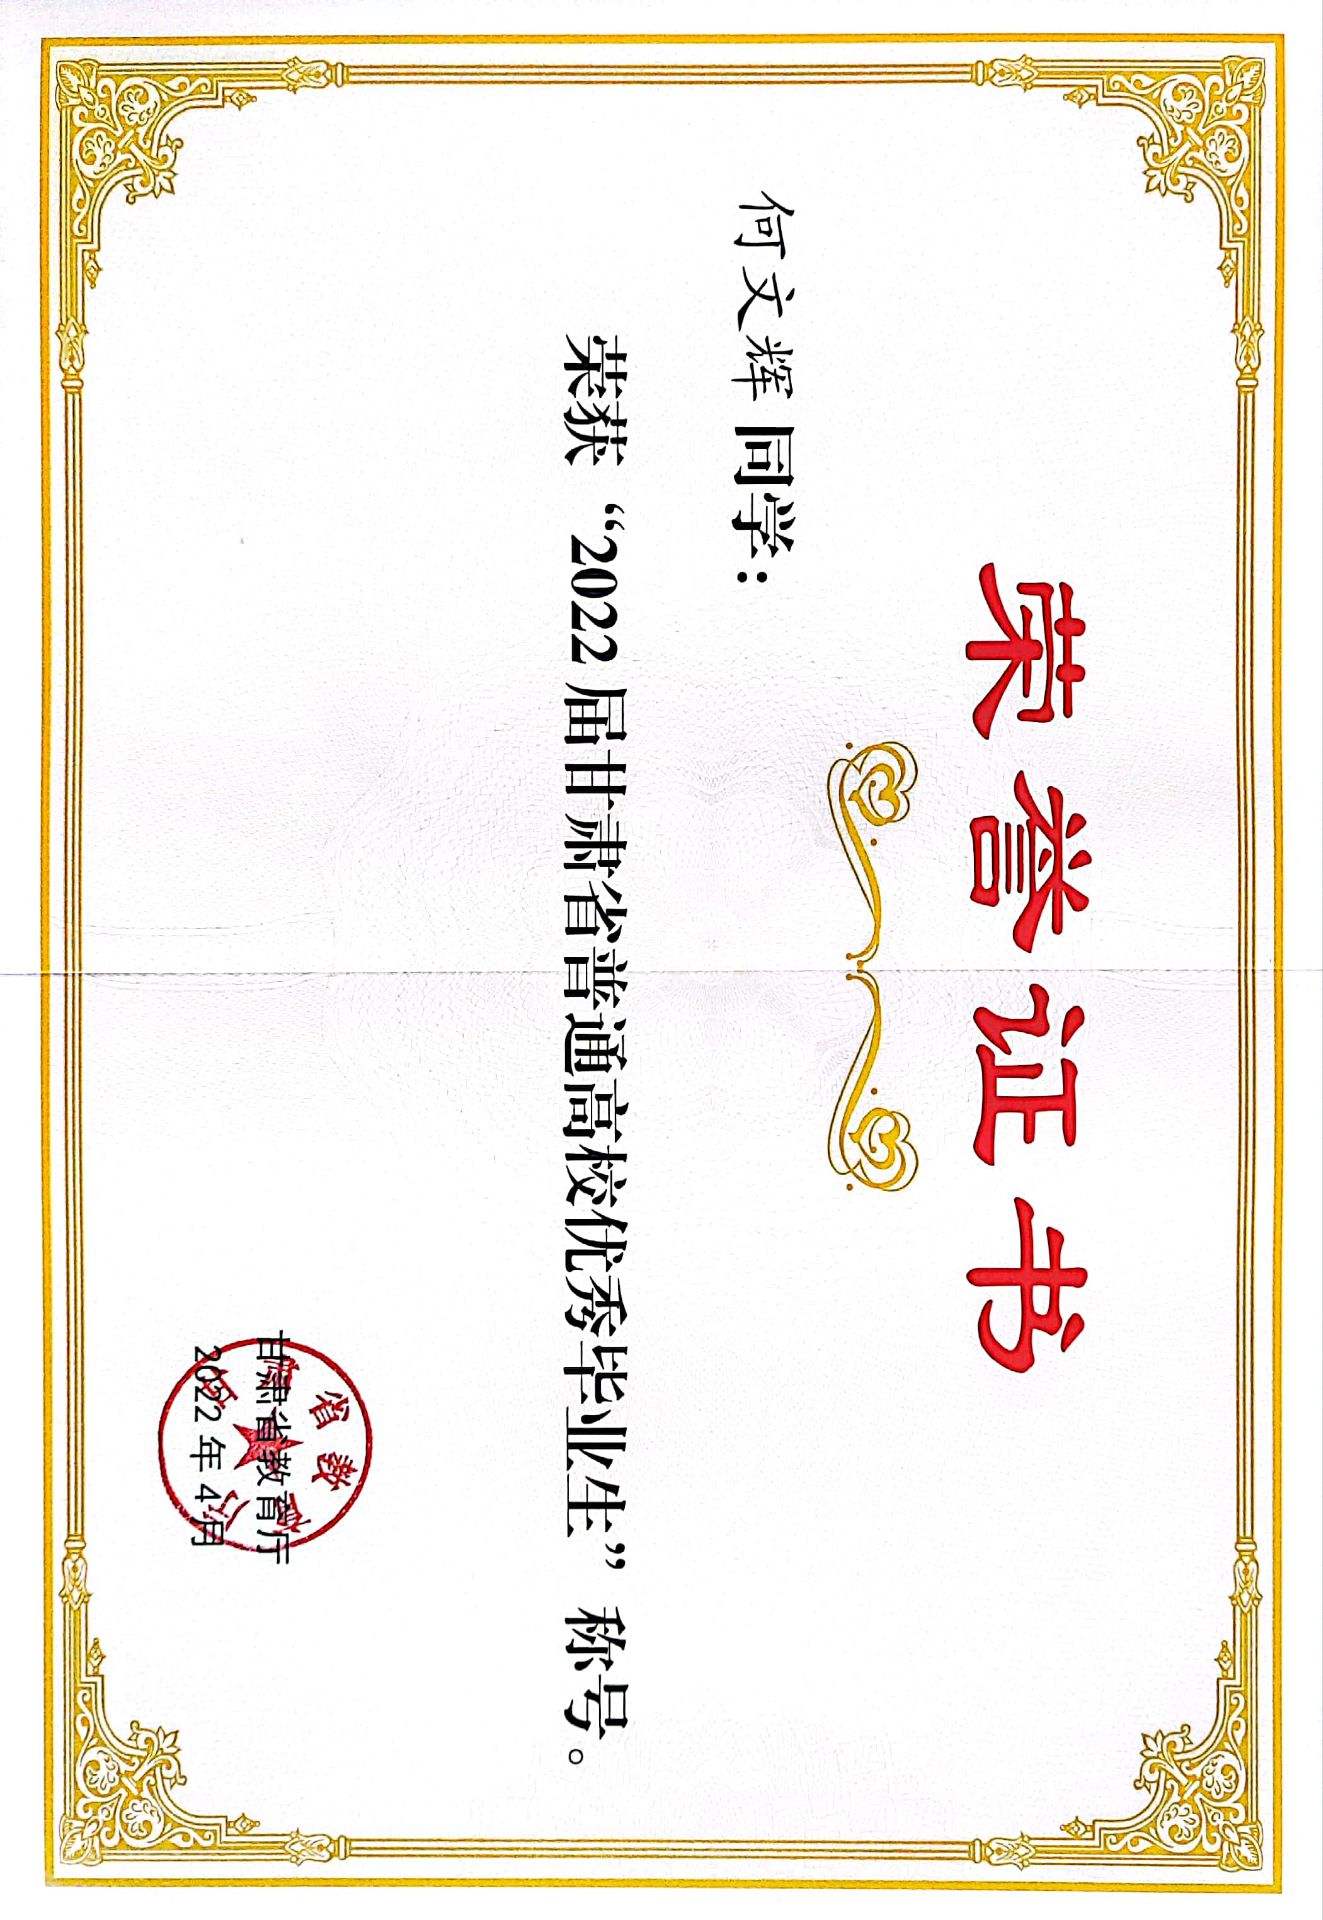 荣誉证书
何文辉 同学：
荣获“2022 届甘肃省普通高校优秀毕业生”称号。
甘肃省教育厅
2022 年 4 月
甘肃省教育厅